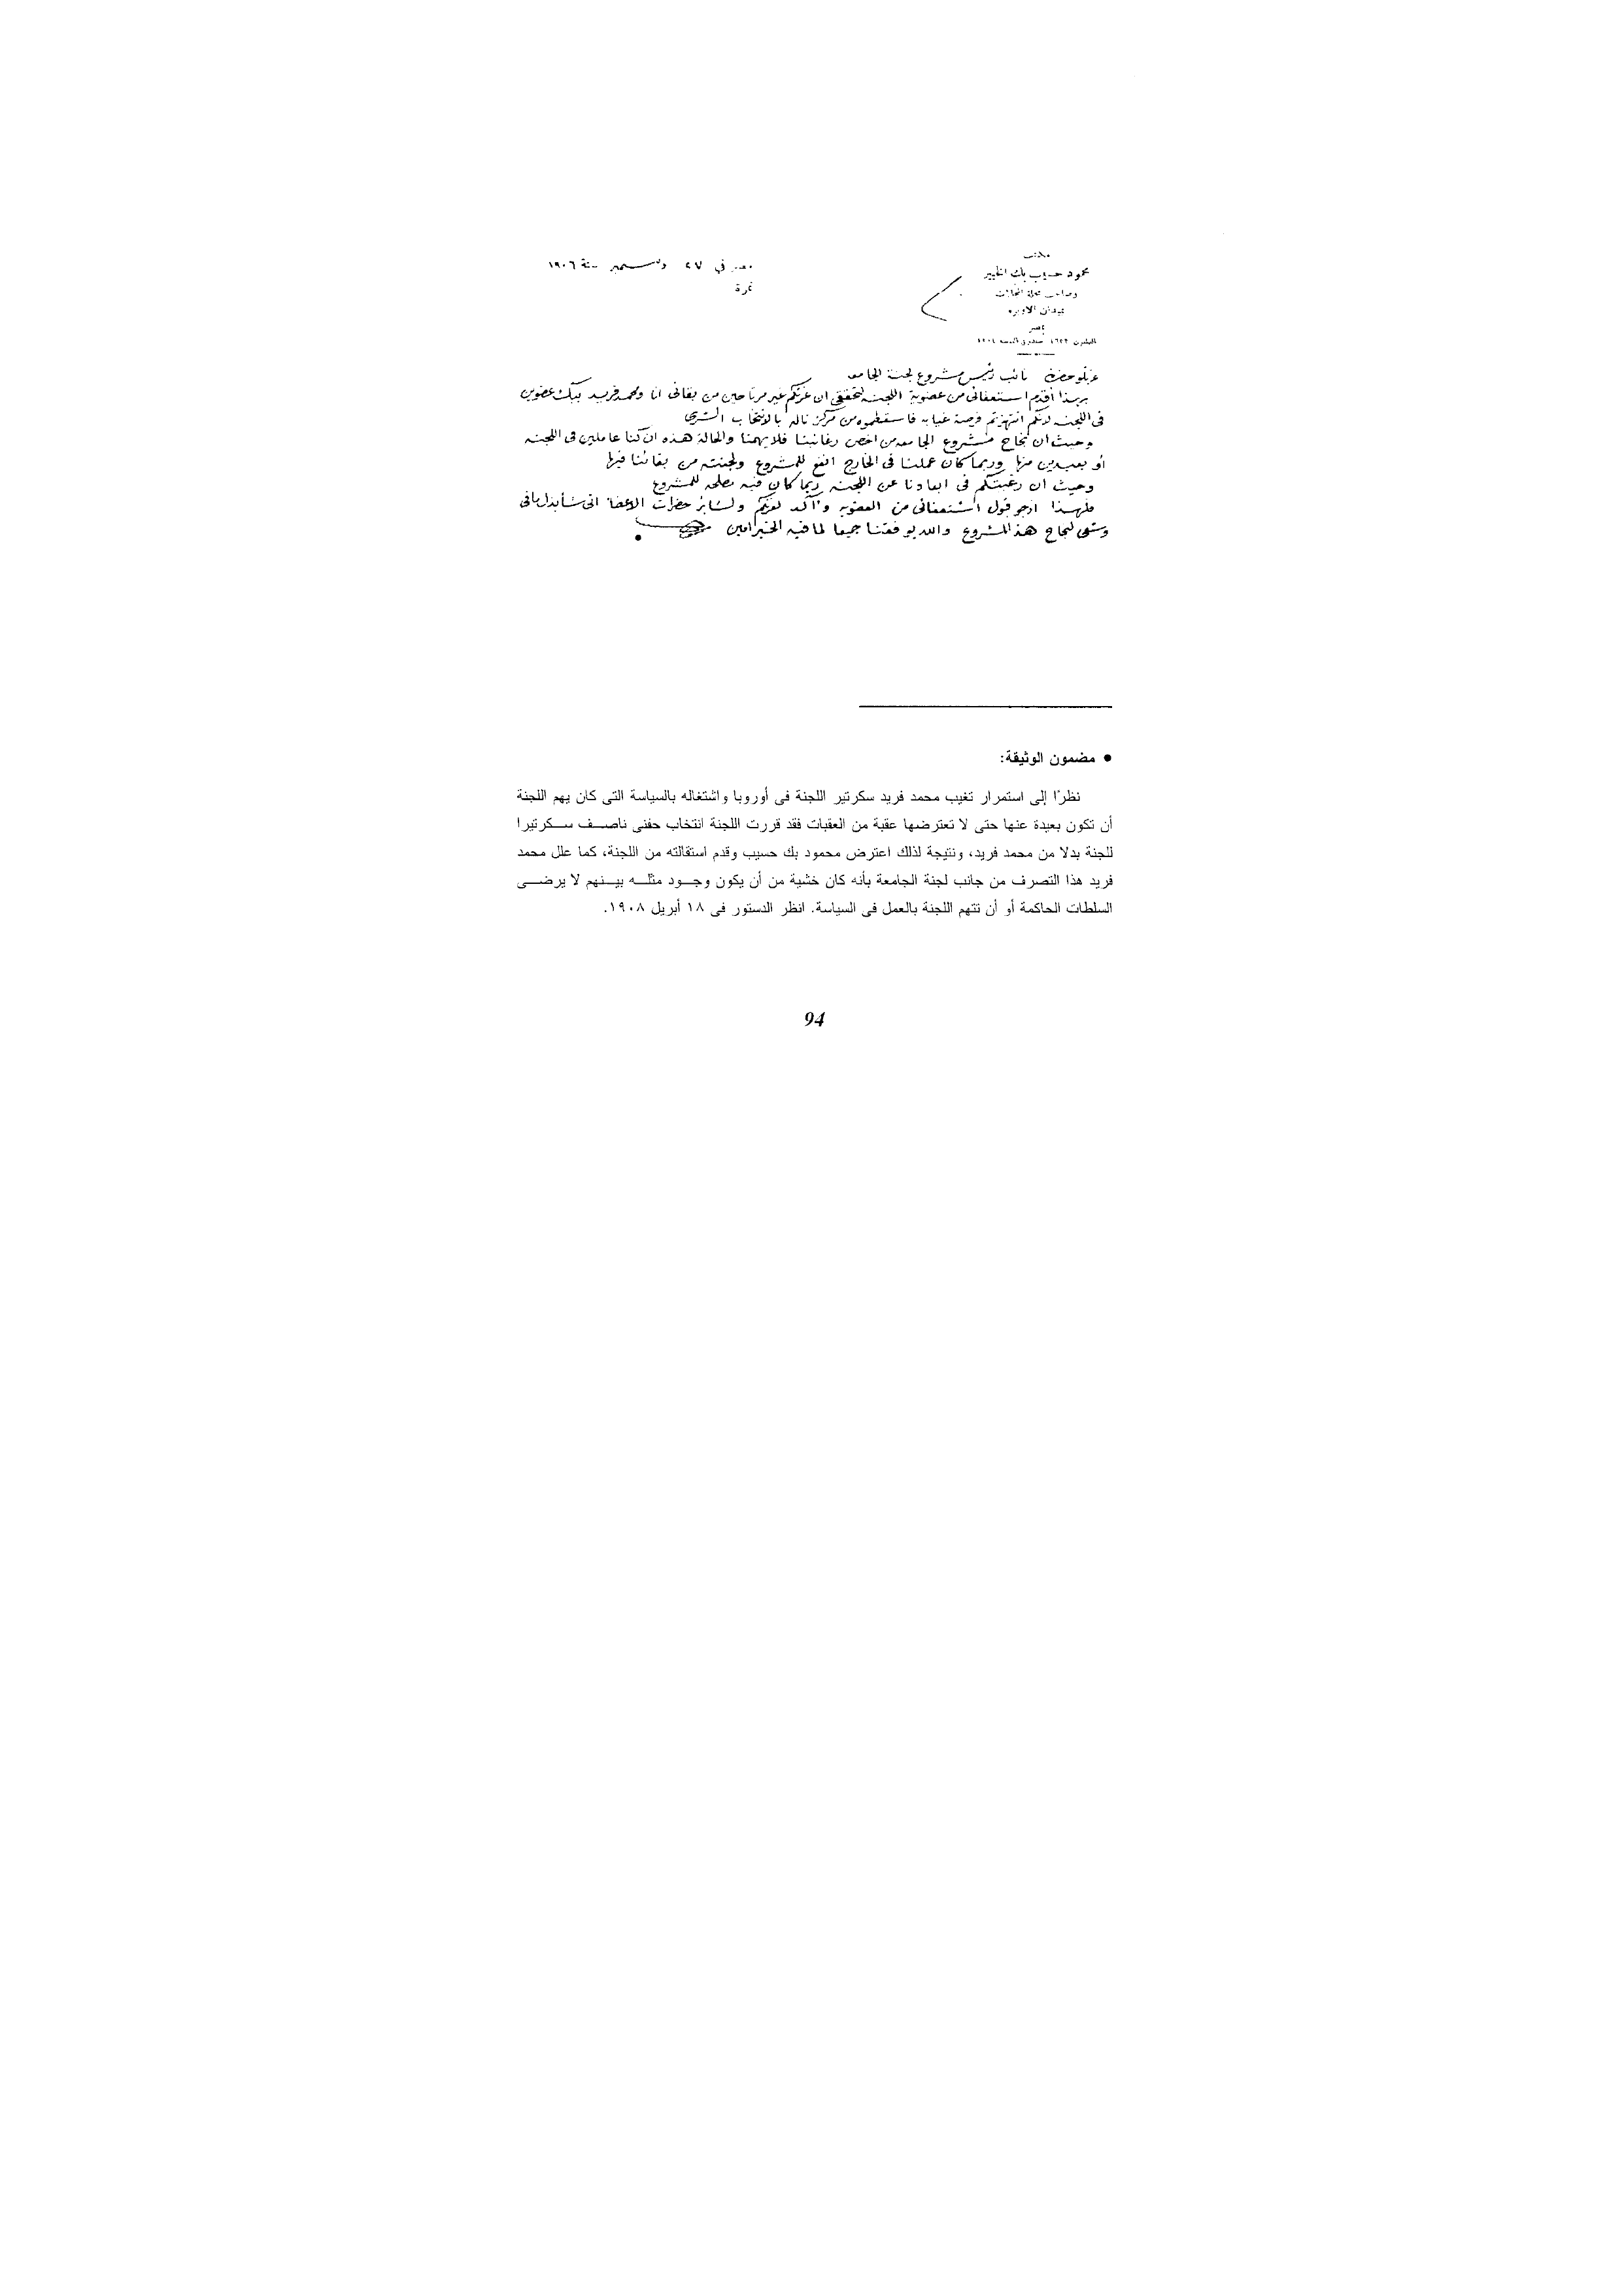 مكتب
محمود حسيب بك الخبير
وصاحب مجلة المجلات
بميدان الاوبره
بمصر
التليفون ١٦٥٢ صندوق البوسته
مصر في ٢٧ دسمبر سنة ١٩٠٦
نمرة
عزتلو حضرة نائب رئيس مشروع لجنة الجامعه
بهذا أقدم استعفائى من عضوية اللجنه لتحققى ان عزتكم غير مرتاحين من بقائى انا ومحمد فريد بيك عضوين
فى اللجنه لانكم انتهزتم فرصة غيابه فاسقطموه من مركز ناله بالانتخاب السرى
وحيث ان نجاح مشروع الجامعه من اخص رغائبنا فلا يهمنا والحالة هذه ان كنا عاملين فى اللجنه
أو بعيدين منها وربما كان عملنا فى الخارج انفع للمشروع ولجنته من بقائنا فيها
وحيث ان رغبتكم فى ابعادنا عن اللجنه ربما كان فيه مصلحه للمشروع
فلهذا ارجو قبول استعفائى من العضويه وأأكد لعزتكم ولسائر حضرات الاعضا انى سأبذل ما فى
وسعى لنجاح هذا المشروع والله يوفقنا جميعا لما فيه الخير امين
• مضمون الوثيقة:
نظرًا إلى استمرار تغيب محمد فريد سكرتير اللجنة فى أوروبا واشتغاله بالسياسة التى كان يهم اللجنة
أن تكون بعيدة عنها حتى لا تعترضها عقبة من العقبات فقد قررت اللجنة انتخاب حفنى ناصف سكرتيرا
للجنة بدلا من محمد فريد، ونتيجة لذلك اعترض محمود بك حسيب وقدم استقالته من اللجنة، كما علل محمد
فريد هذا التصرف من جانب لجنة الجامعة بأنه كان خشية من أن يكون وجود مثله بينهم لا يرضى
السلطات الحاكمة أو أن تتهم اللجنة بالعمل فى السياسة. انظر الدستور فى ١٨ أبريل ١٩٠٨.
94